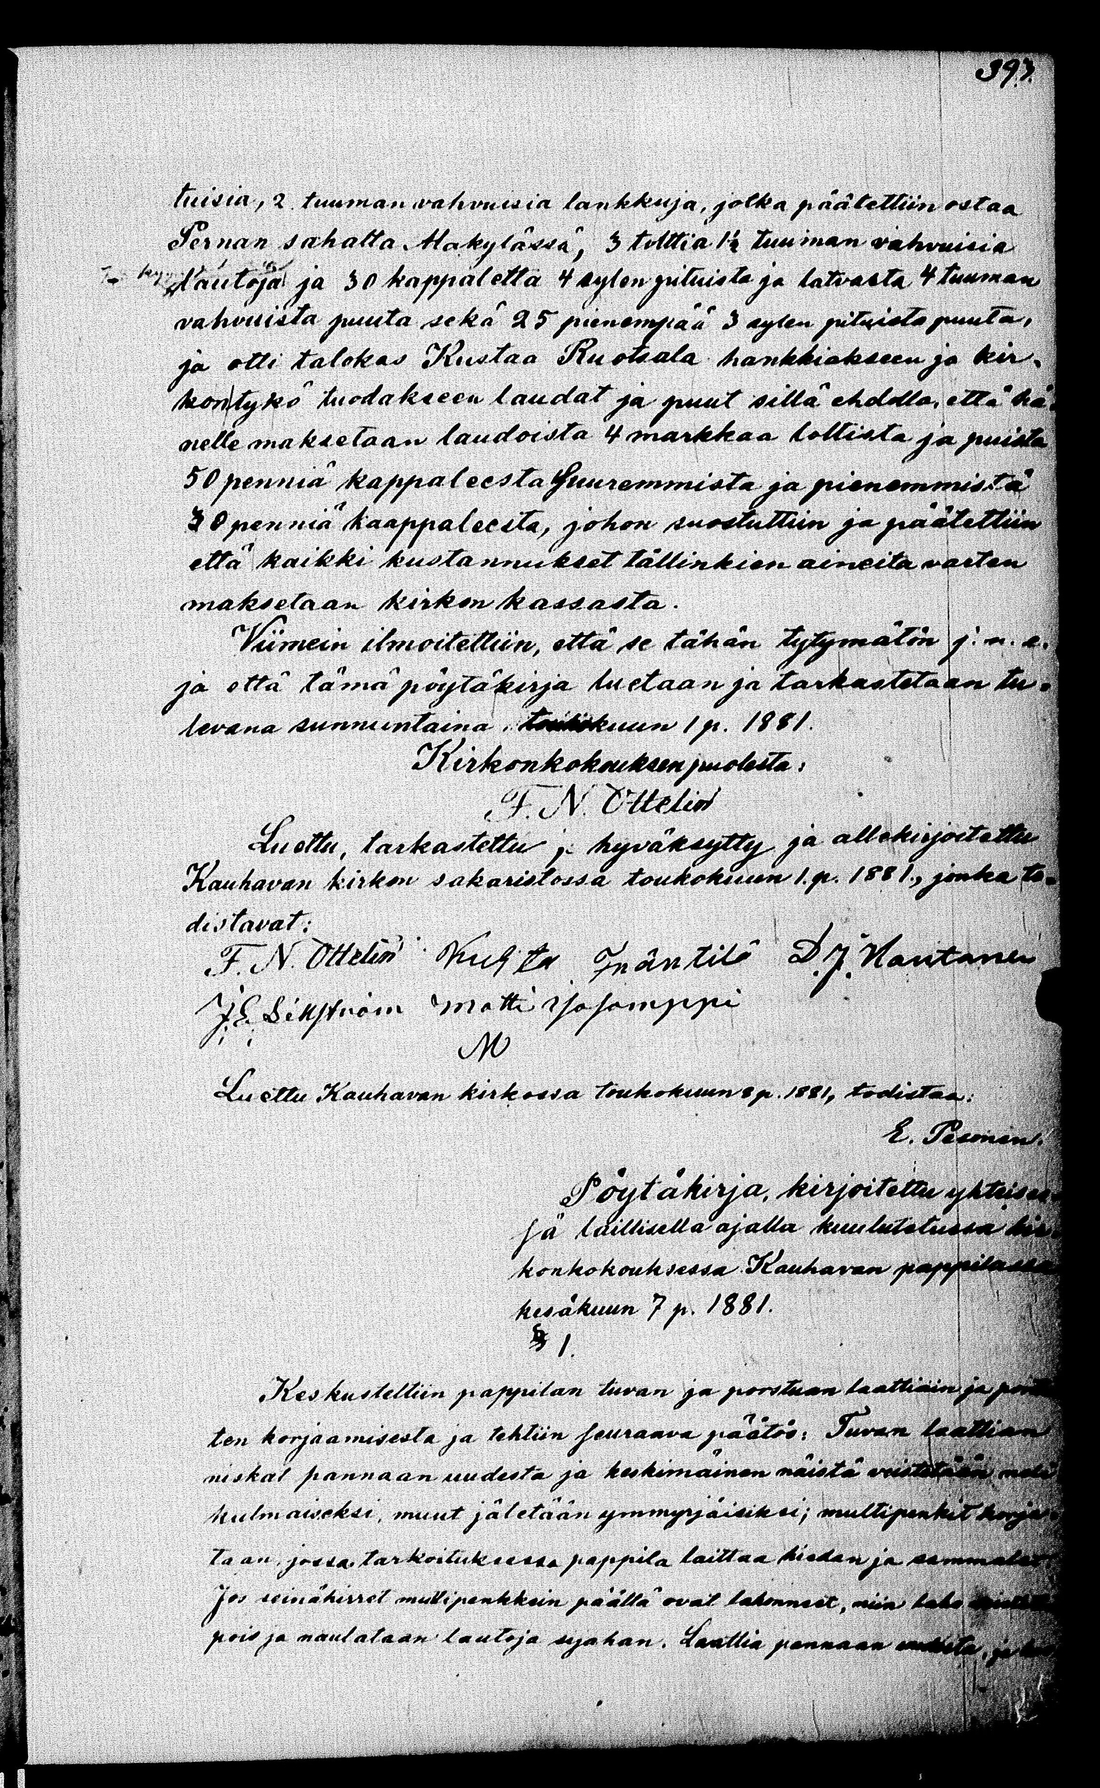 393.
tuisia, 2 tuuman vahvuisia lankkuja, jotka päätettiin ostaa
Pernan sahalta Makylässä, 3 tolttia 1½ tuuman vahvuisia
lautoja ja 30 kappaletta 4 sylen pituista ja latvasta 4 tuuman
vahvuista puuta sekä 25 pienempää 3 sylen pituista puuta,
ja otti talokas Kustaa Ruotsala hankkiakseen ja kir-
kontykö tuodakseen laudat ja puut sillä ehdolla, että hä-
nelle maksetaan laudoista 4 markkaa toltista ja puista
50 penniä kappaleesta suuremmista ja pienemmistä
30 penniä kaappaleesta, johon suostuttiin ja päätettiin
että kaikki kustannukset tällinkien aineita varten
maksetaan kirkon kassasta.
Viimein ilmoitettiin, että se tähän tytymätön j. n. e.
ja että tämä pöytäkirja luetaan ja tarkastetaan tu-
levana sunnuntaina toukokuun 1 p. 1881.
Kirkonkokouksen puolesta:
F. N. Ottelin
Luettu, tarkastettu, hyväksytty ja allekirjoitettu
Kauhavan kirkon sakaristossa toukokuun 1. p. 1881, jonka to-
distavat:
F. N. Ottelin Kusta Inäntilä D. J. Nantanen
J. E. Sillström Matti Isosomppi
M
Luettu Kauhavan kirkossa toukokuun 8 p. 1881, todistaa:
E. Pesonen.
Pöytäkirja, kirjoitettu yhteises-
sä laillisella ajalla kuulutetussa kir-
konkokouksessa Kauhavan pappilassa
kesäkuun 7 p. 1881.
§ 1.
Keskusteltiin pappilan tuvan ja porstuan laattiain ja
ten korjaamisesta ja tehtiin seuraava päätös: Tuvan laattian
niskat pannaan uudesta ja keskimäinen näistä veistetään neli
kulmaiseksi, muut jäletään ymmyrjäisiksi; multipenkit korja-
taan, jossa tarkoituksessa pappila laittaa hiedan ja sammalet
Jos seinähirret multipenkkein päällä ovat lahonneet, niin laho
pois ja naulataan lautoja sijahan. Laattia pannaan uudesta, ja